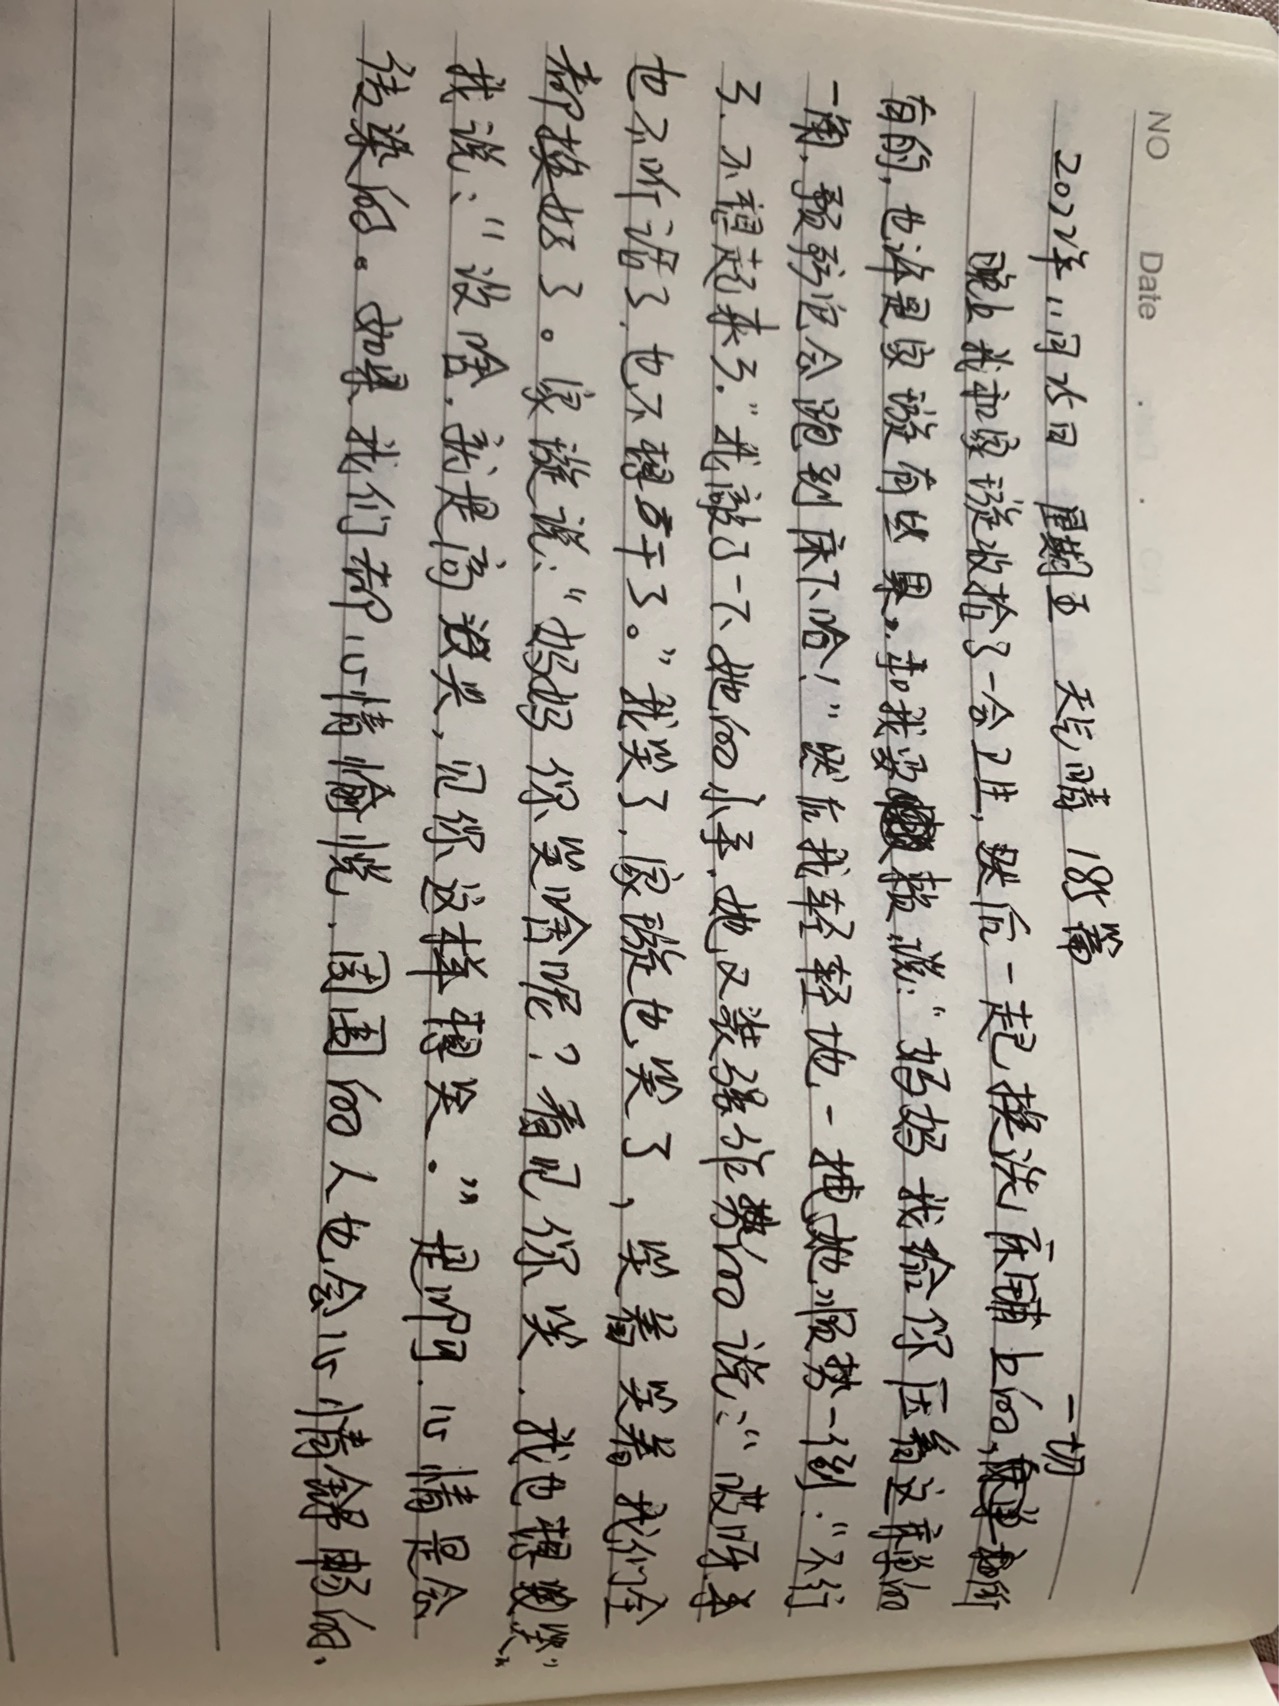 NO Date
2022年11月25日 星期五 天气晴 185篇
晚上我和家璇收拾了一会卫生,然后一起换洗床铺上的一切所
有的,也许是家璇有些累,和我耍赖,说:“妈妈我给你压着这床单的
一角,要不它会跑到床下哈!”然后我轻轻地一拽,她顺势一倒:“不行
了,不想起来了。”我敲了一下她的小手,她又装强作势的说:“哎呀手
也不听话了,也不想干了。”我笑了,家璇也笑了,笑着笑着我们全
都换好了。家璇说:“妈妈你笑啥呢?看见你笑,我也想笑”。
我说:“没啥,就是高兴,见你这样想笑。”是啊,心情是会
传染的。如果我们都心情愉悦,周围的人也会心情舒畅的。